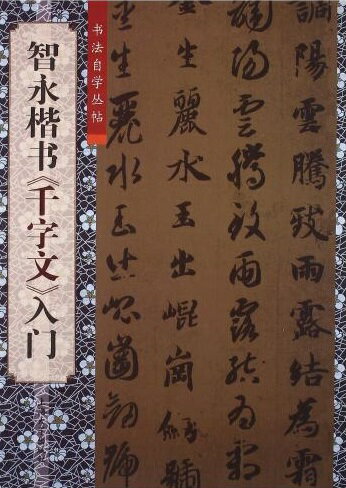 书法自学丛帖
智永楷书《千字文》入门
調陽雲騰致雨露結為霜
調陽雲騰致雨露結為霜
生麗水玉出崐崗劒號
生麗水玉出崐崗劒號